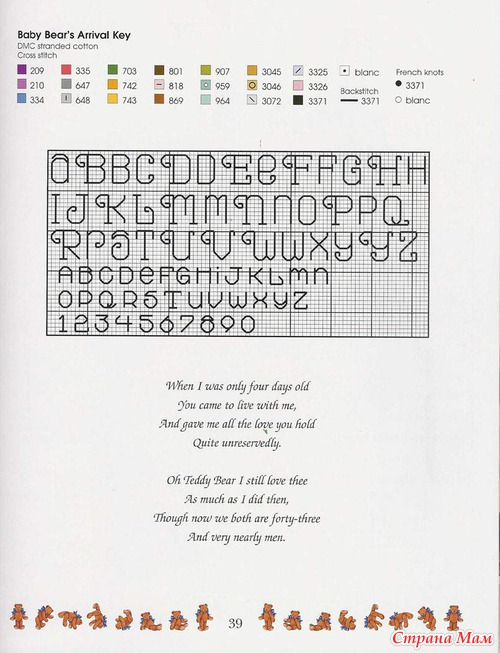 Baby Bear's Arrival Key
DMC stranded cotton
Cross stitch
209 335 703 801 907 3045 3325 blanc French knots
210 647 742 818 959 3046 3326 Backstitch 3371
334 648 743 869 964 3072 3371 3371 blanc
aBBCDDEeFFGHH
IJKLMmnnOPPQ
RRSTUUVWWXYYZ
ABCDeFGHiJKLmn
OPQRSTUVWXYZ
1234567890
When I was only four days old
You came to live with me,
And gave me all the love you hold
Quite unreservedly.
Oh Teddy Bear I still love thee
As much as I did then,
Though now we both are forty-three
And very nearly men.
39
Страна Мам